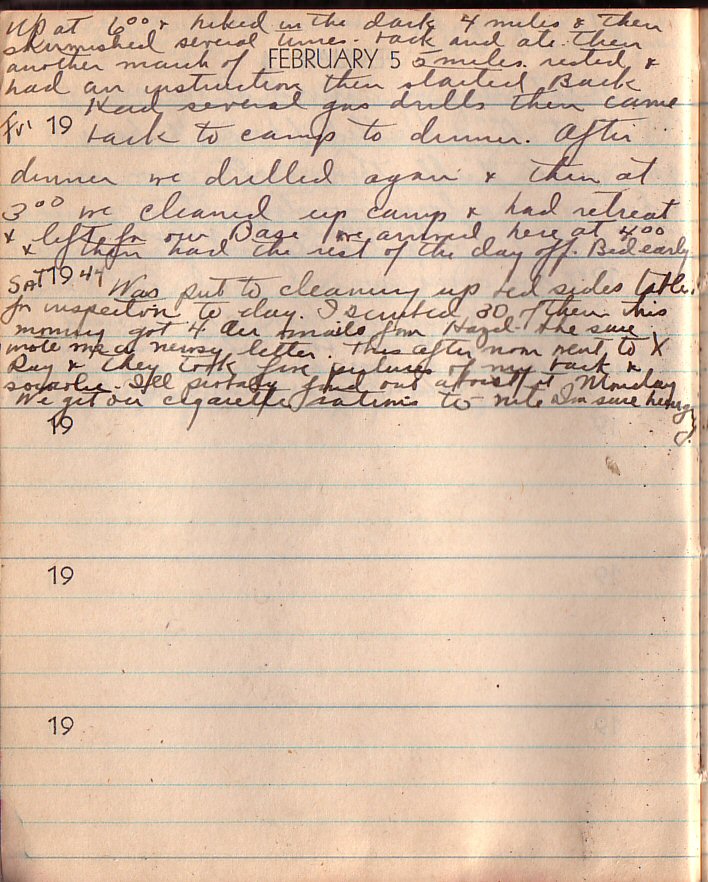 Up at 6 00 & hiked in the dark 4 miles & then
skirmished several times. back and ate. then
another march of 5 miles. rested &
FEBRUARY 5
had an instruction then started Back
Had several gas drills then came
Fri 19 back to camp to dinner. After
dinner we drilled again & then at
3 00 we cleaned up camp & had retreat
& left for our Base we arrived here at 4 00
& then had the rest of the day off. Bed early
SAT 19 44 Was put to cleaning up bed sides tables
for inspection to day. I scrubed 30 of them this
morning got 4 air mails from Hazel. She sure
wrote me a newsy letter. This after noon went to X
Ray & they took five pictures of my back &
I'll probaly find out about it Monday
We get our cigarette rations to nite I'm sure hungry
19
19
19